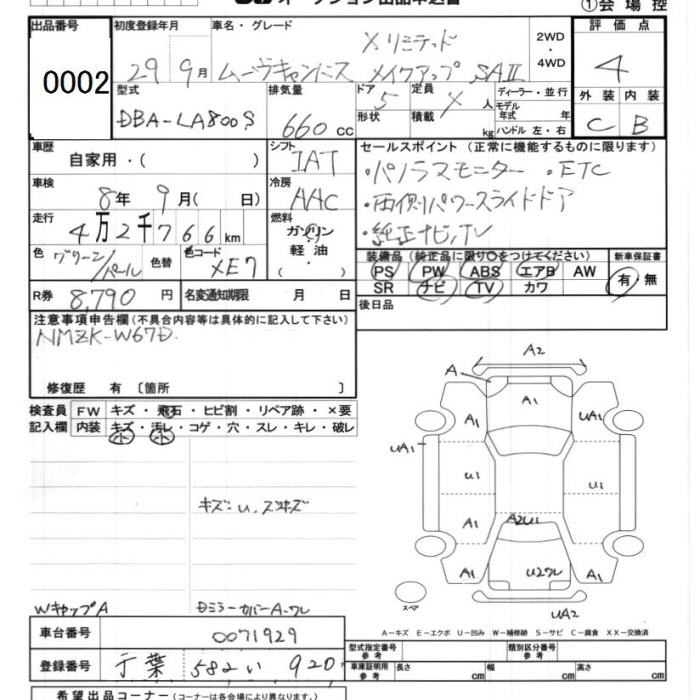 ①会場控
出品番号 初度登録年月 車名・グレード 2WD 評価点
0002 29 9月 ムーヴキャンバス Xリミテッド メイクアップ SAⅡ 4WD 4
型式 排気量 ドア 定員 ディーラー・並行 外装 内装
DBA-LA800S 660cc 5 形状 積載 人 kg モデル年式 年 ハンドル 左・右 C B
車歴 シフト セールスポイント (正常に機能するものに限ります)
自家用・( ) IAT ・パノラマモニター ・ETC
車検 冷房 ・両側パワースライドドア
8年 9月( 日) AAC ・純正ナビ,TV
走行 燃料
4万2千766km ガソリン 軽油・
色 色替 色コード 装備品 (純正品に限り○をつけてください) 新車保証書
グリーン/パール XE7 PS PW ABS エアB AW 有・無
SR ナビ TV カワ
R券 8,790円 名変通知期限 月 日 後日品
注意事項申告欄 (不具合内容等は具体的に記入して下さい)
NMZK-W67D
修復歴 有 〔箇所 〕
検査員 FW キズ・飛石・ヒビ割・リペア跡・×要
記入欄 内装 キズ・汚レ・コゲ・穴・スレ・キレ・破レ
小 小
A2
A A1
A1 UA1
UA1
U1 U1
A1 A2U1
A1 U2ワレ A1
UA2
スペア
キズ:U,スリキズ
WキャップA DミラーカバーA・ワレ
A－キズ E－エクボ U－凹み W－補修跡 S－サビ C－腐食 XX－交換済
車台番号 0071929
登録番号 千葉 582 い 920
型式指定番号 参考 類別区分番号 参考
車庫証明用 参考 長さ cm 幅 cm 高さ cm
希望出品コーナー (コーナーは各会場により異なります。)